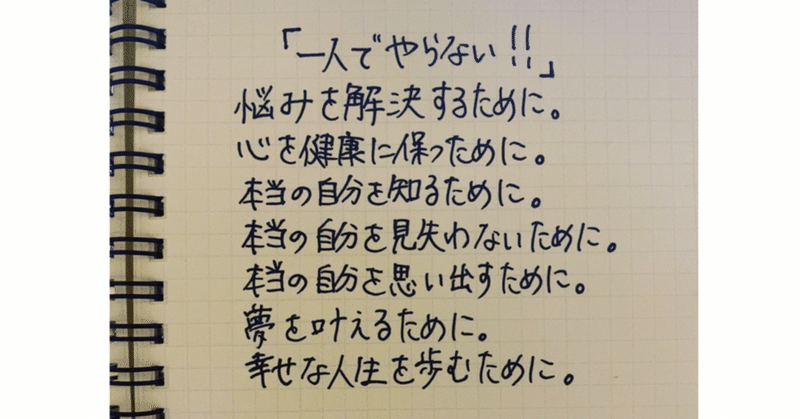 「一人でやらない!!」
悩みを解決するために。
心を健康に保つために。
本当の自分を知るために。
本当の自分を見失わないために。
本当の自分を思い出すために。
夢を叶えるために。
幸せな人生を歩むために。